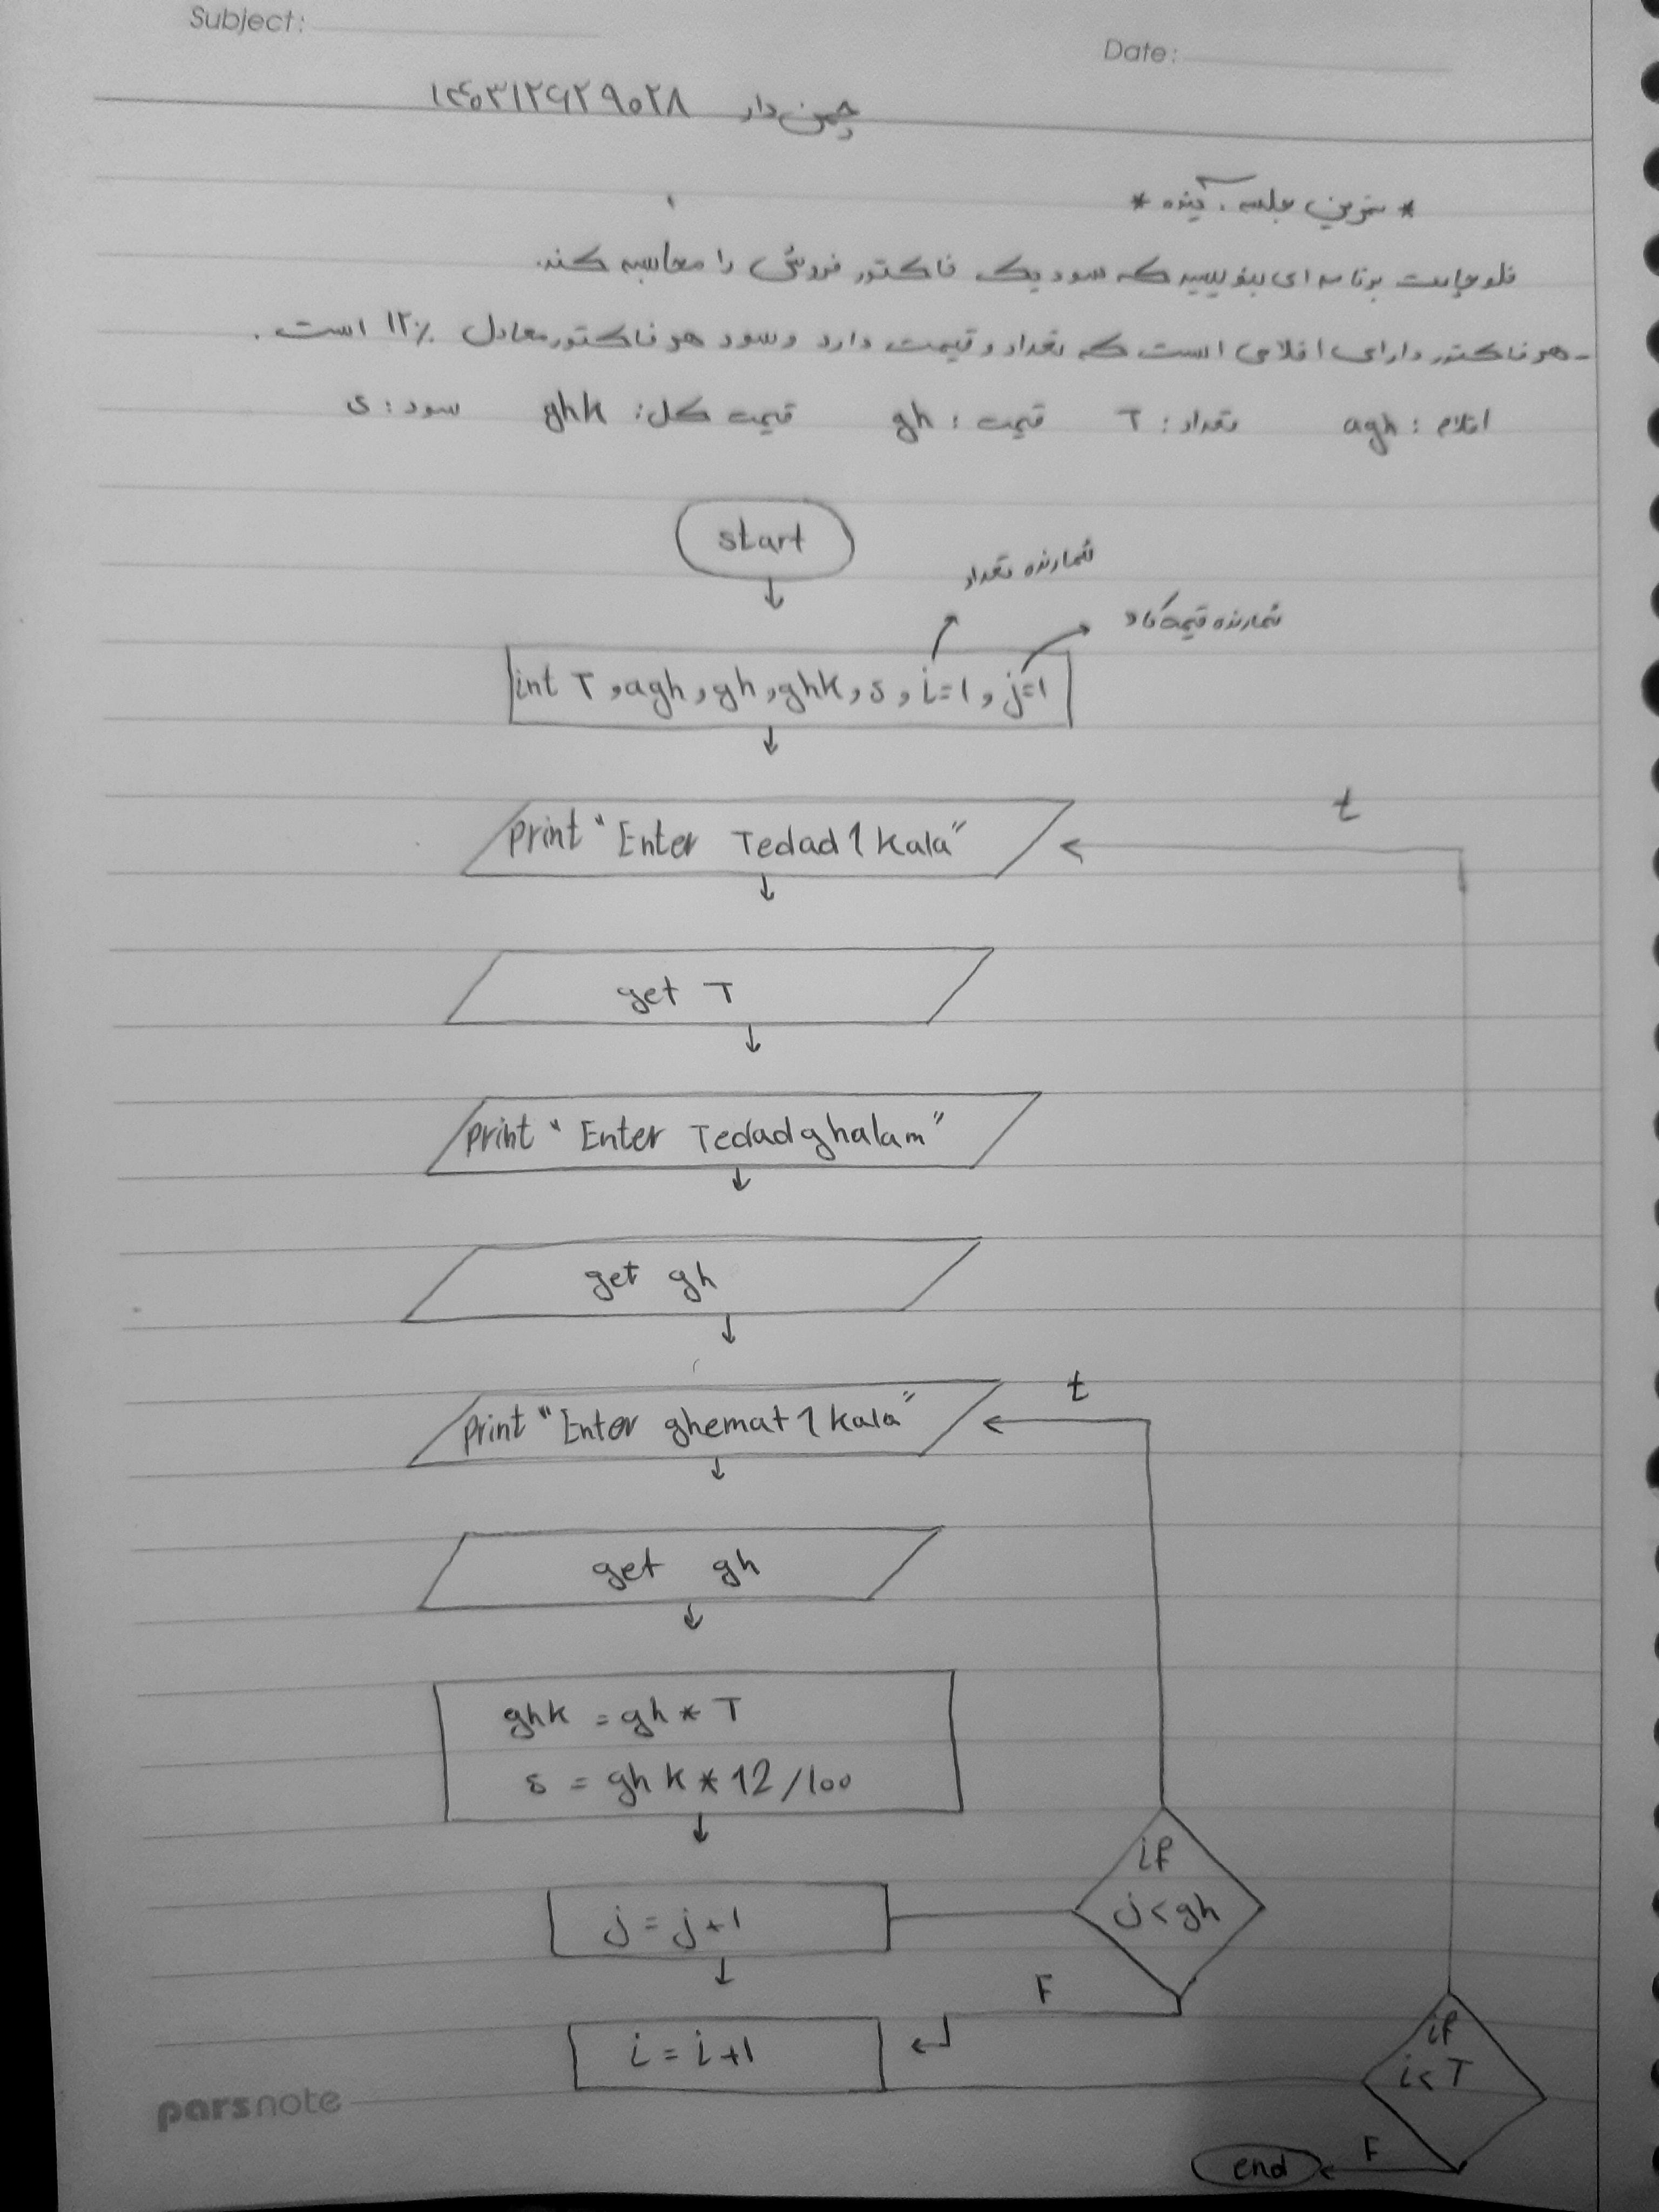 Subject:
Date:
چمن دار ۱۴۰۳۱۲۶۲۹۰۲۸
* تمرین جلسه آینده *
فلوچارت برنامه ای بنویسید که سود یک فاکتور فروش را محاسبه کند.
- هر فاکتور دارای اقلامی است که تعداد و قیمت دارد و سود هر فاکتور معادل ۱۲٪ است.
اقلام: agh تعداد: T قیمت: gh قیمت کل: ghk سود: s
start
شمارنده تعداد
شمارنده قیمت
int T, agh, gh, ghk, s, i=1, j=1
print "Enter Tedad 1 kala"
t
get T
print "Enter Tedad ghalam"
get gh
print "Enter ghemat 1 kala"
t
get gh
ghk = gh * T
s = ghk * 12/100
if
j = j+1
j < gh
F
i = i+1
if
i < T
parsnote
F
end